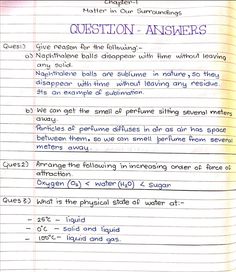 Chapter-1
Matter in Our Surroundings
QUESTION - ANSWERS
Ques:1) Give reason for the following:-
a) Naphthalene balls disappear with time without leaving
any solid.
Naphthalene balls are sublime in nature, so they
disappear with time without leaving any residue.
Its an example of sublimation.
b) We can get the smell of perfume sitting several meters
away.
Particles of perfume diffuses in air as air has space
between them, so we can smell perfume from several
meters away.
Ques2) Arrange the following in increasing order of force of
attraction.
Oxygen (O₂) < water (H₂O) < Sugar
Ques 3) What is the physical state of water at:-
- 25°C - liquid
- 0°C - solid and liquid
- 100°C - liquid and gas.